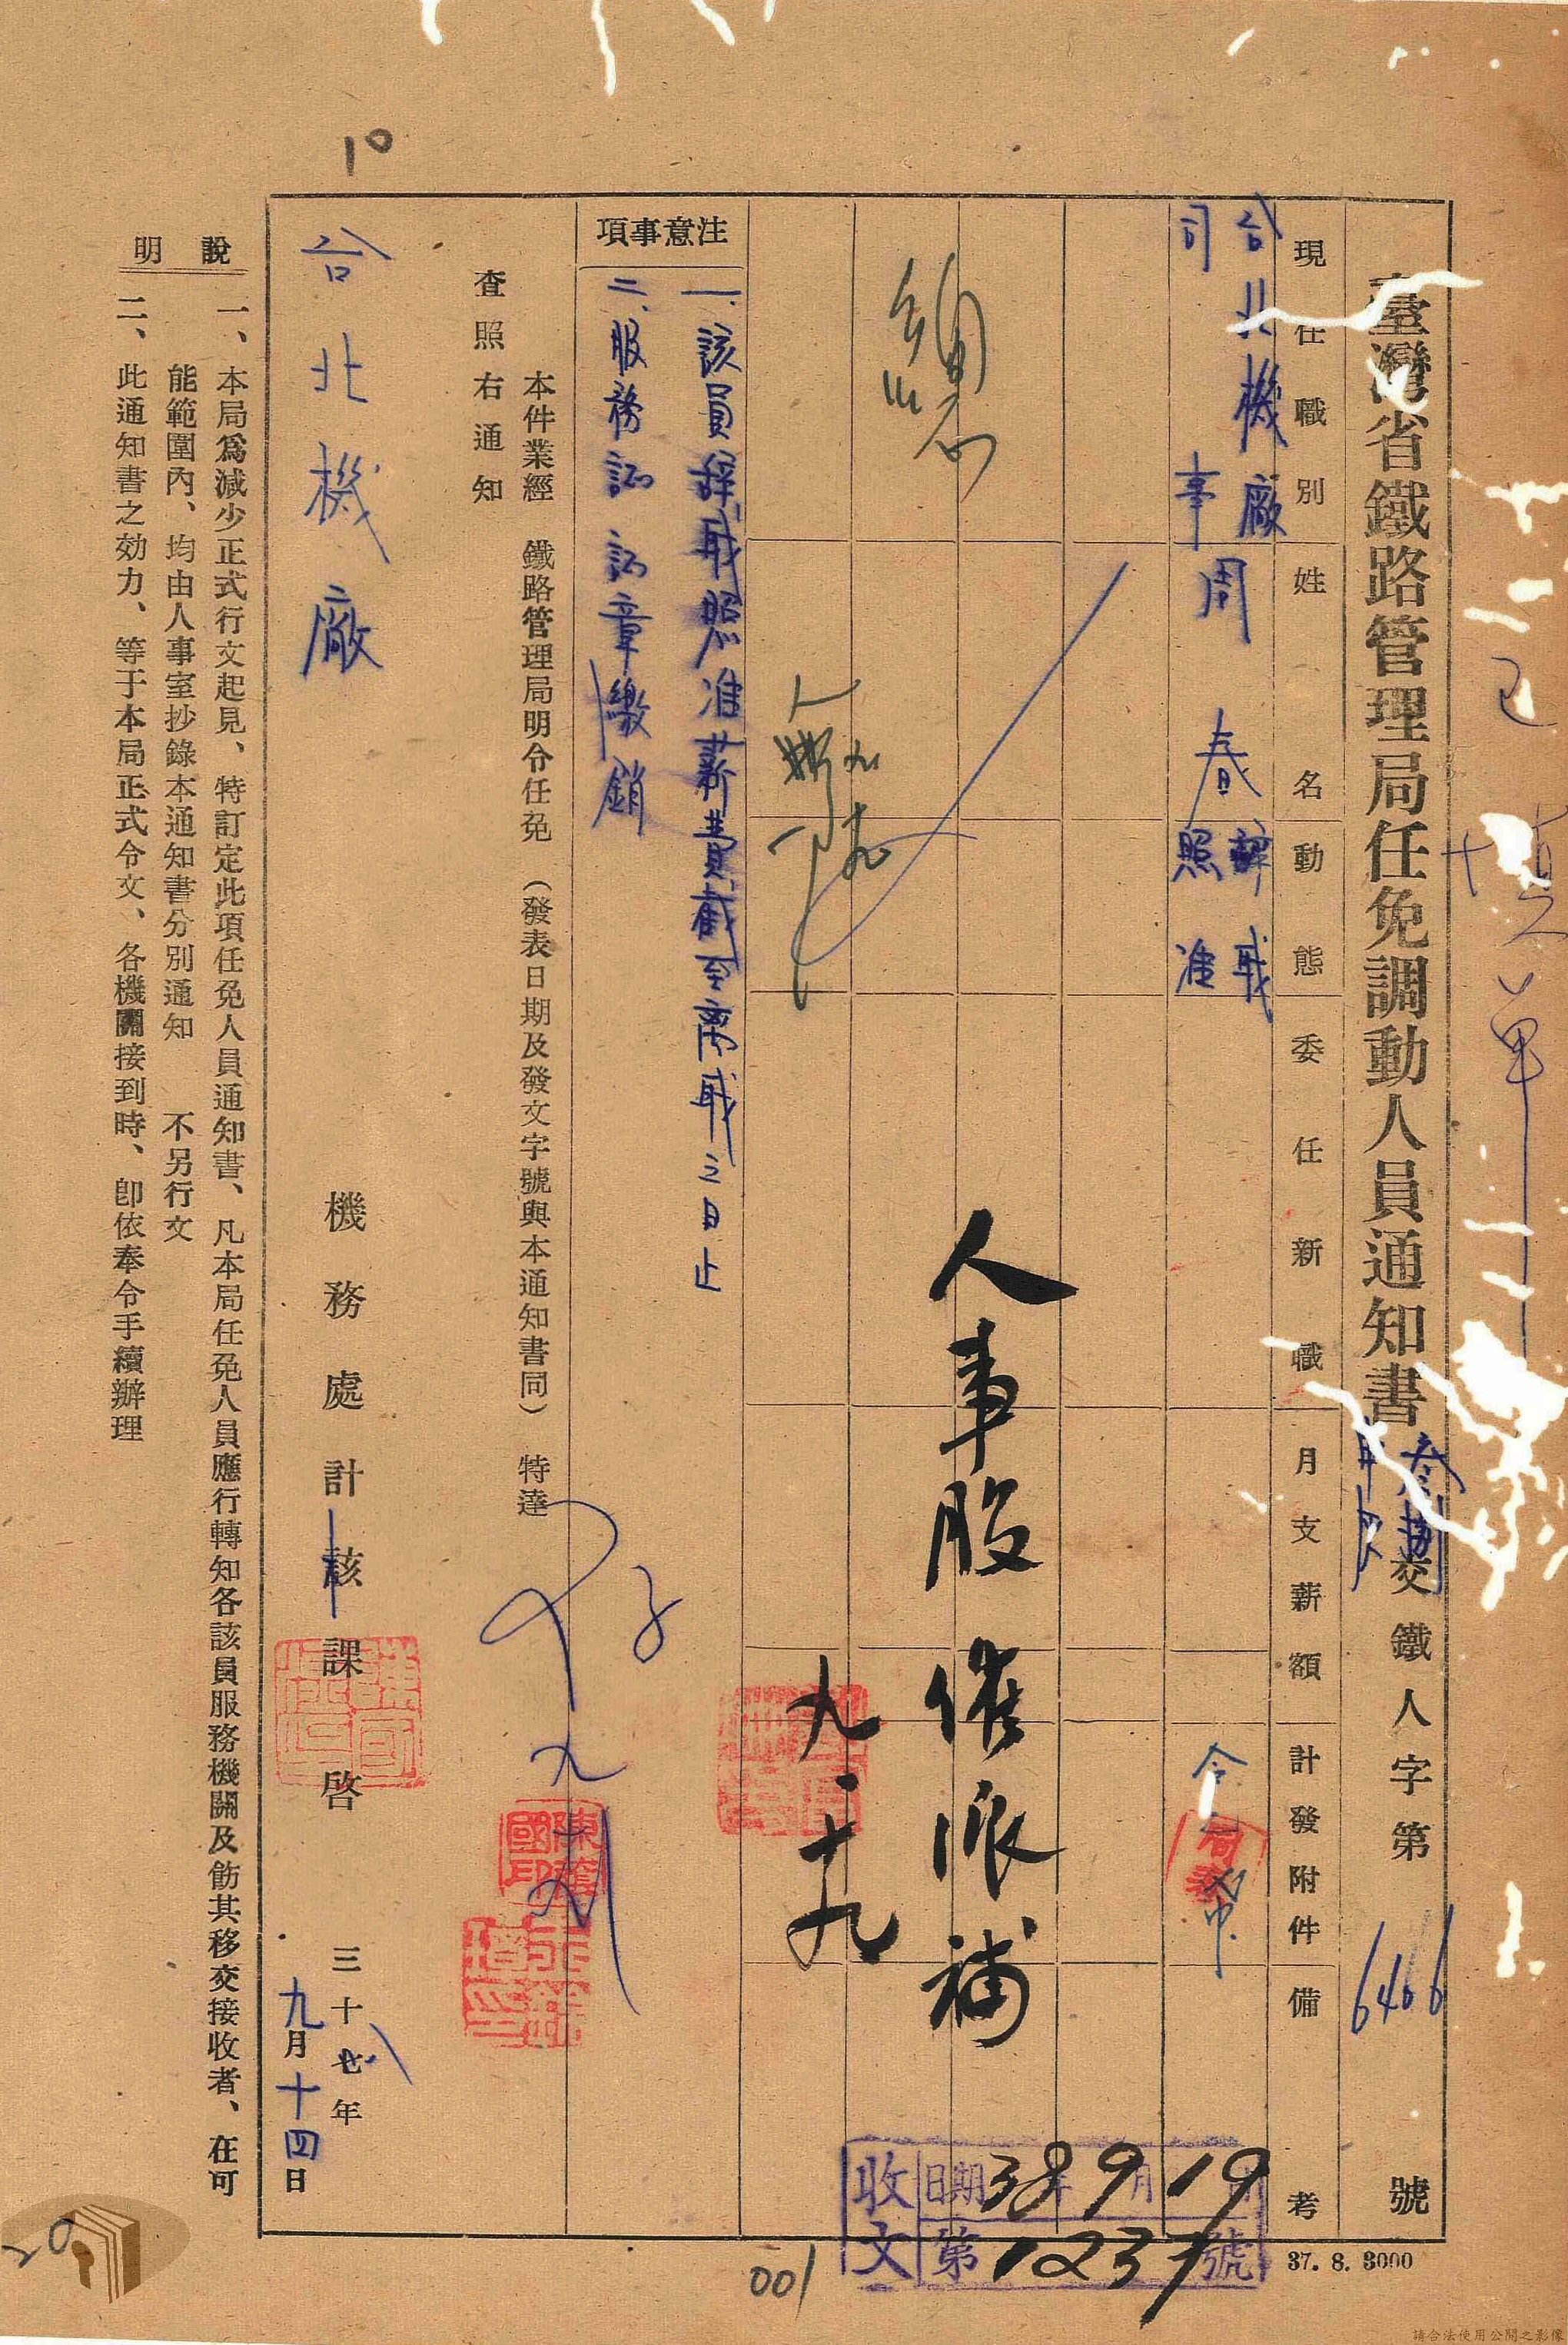 臺灣省鐵路管理局任免調動人員通知書
交鐵人字第6466號
現任職別
姓名
動態
委任新職
月支薪額
計發附件
備考
台北機廠
司事
周春
辭職
照准
人事股催派補
九.十九
注意事項
一、該員辭職照准薪費截至离職之日止
二、服務証証章繳銷
本件業經 鐵路管理局明令任免 (發表日期及發文字號與本通知書同) 特達
查照右通知
台北機廠
機務處計該課啓
三十八年
九月十四日
說明
一、本局爲減少正式行文起見、特訂定此項任免人員通知書、凡本局任免人員應行轉知各該員服務機關及飭其移交接收者、在可
能範圍內、均由人事室抄錄本通知書分別通知 不另行文
二、此通知書之効力、等于本局正式令文、各機關接到時、卽依奉令手續辦理
收文
日期38年9月19日
第1237號
37. 8. 3000
001
10
20
請合法使用公開之影像